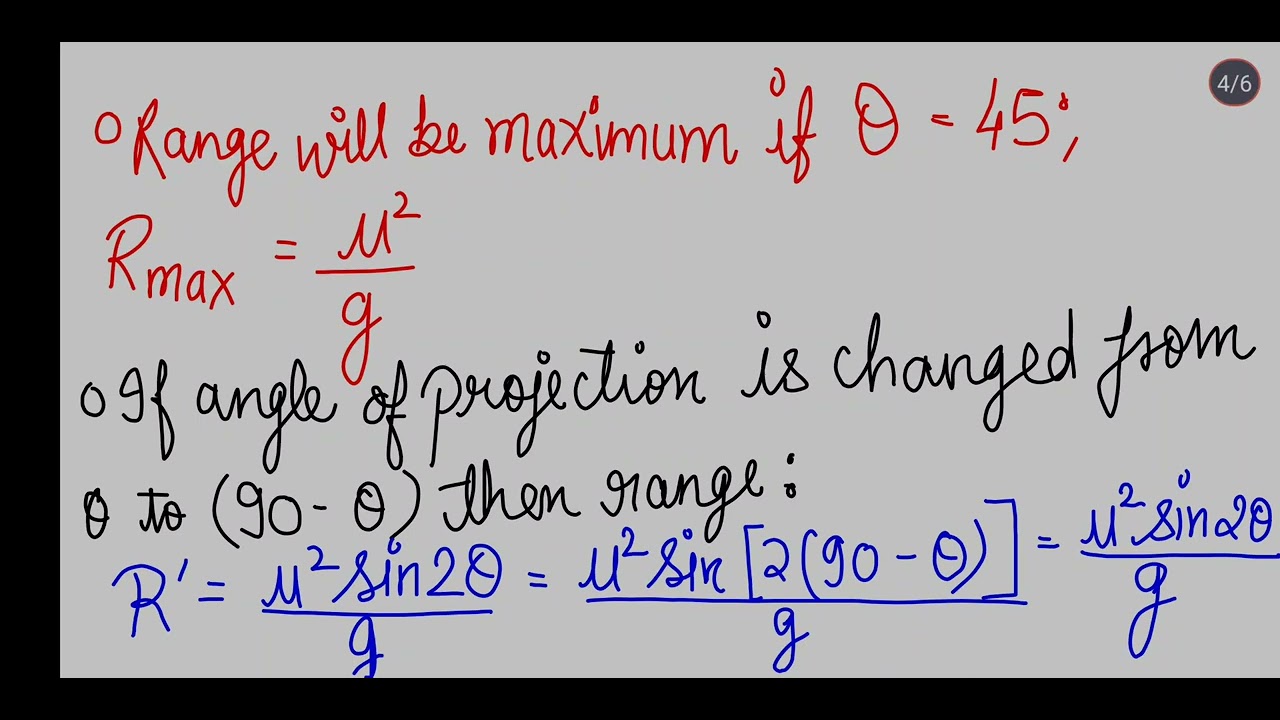 4/6
○ Range will be maximum if θ = 45°,
R_max = u²/g
○ If angle of projection is changed from
θ to (90 - θ) then range :
R' = u² sin2θ/g = u² sin [2(90 - θ)]/g = u² sin2θ/g